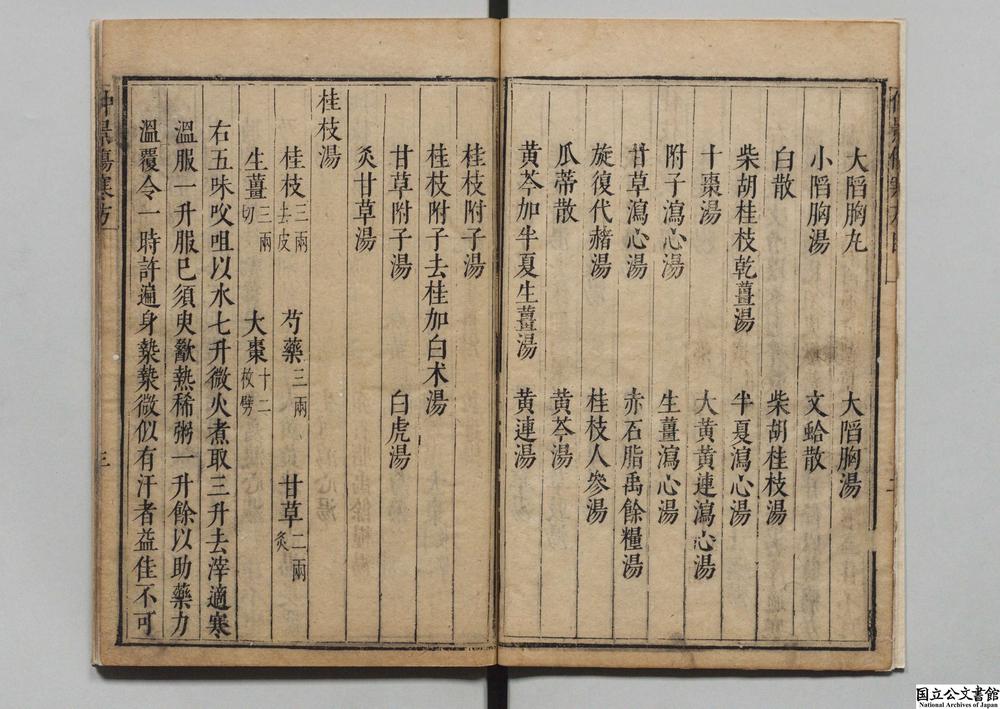 大陷胸丸 大陷胸湯
小陷胸湯 文蛤散
白散 柴胡桂枝湯
柴胡桂枝乾薑湯 半夏瀉心湯
十棗湯 大黃黃連瀉心湯
附子瀉心湯 生薑瀉心湯
甘草瀉心湯 赤石脂禹餘糧湯
旋復代赭湯 桂枝人參湯
瓜蒂散 黃芩湯
黃芩加半夏生薑湯 黃連湯
桂枝附子湯
桂枝附子去桂加白术湯
甘草附子湯 白虎湯
炙甘草湯
桂枝湯
桂枝三兩去皮 芍藥三兩 甘草二兩炙
生薑三兩切 大棗十二枚劈
右五味㕮咀以水七升微火煮取三升去滓適寒
溫服一升服已須臾歠熱稀粥一升餘以助藥力
溫覆令一時許遍身漐漐微似有汗者益佳不可
三
国立公文書館
National Archives of Japan